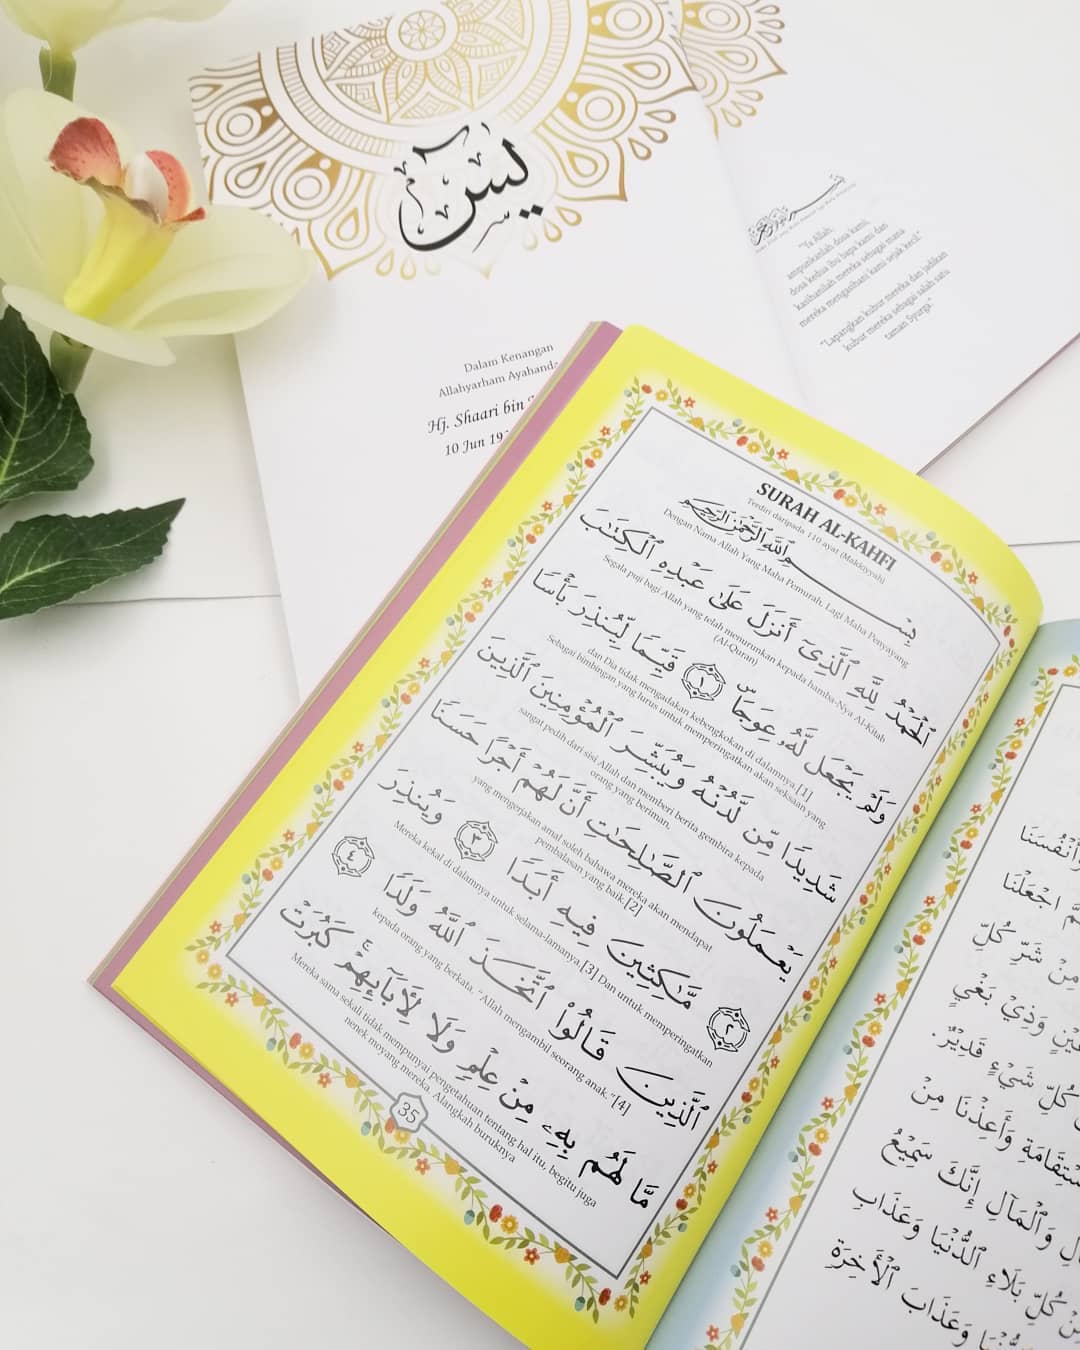 يس
Dalam Kenangan
Allahyarham Ayahanda
Hj. Shaari bin
10 Jun 19
"Ya Allah,
ampunkanlah dosa kami,
dosa kedua ibu bapa kami dan
kasihanilah mereka sebagai mana
mereka mengasihani kami sejak kecil."
"Lapangkan kubur mereka dan jadikan
kubur mereka sebagai salah satu
taman Syurga."
SURAH AL-KAHFI
Terdiri daripada 110 ayat (Makkiyyah)
بِسْمِ ٱللَّهِ ٱلرَّحْمَٰنِ ٱلرَّحِيمِ
Dengan Nama Allah Yang Maha Pemurah, Lagi Maha Penyayang
ٱلْحَمْدُ لِلَّهِ ٱلَّذِىٓ أَنزَلَ عَلَىٰ عَبْدِهِ ٱلْكِتَٰبَ
Segala puji bagi Allah yang telah menurunkan kepada hamba-Nya Al-Kitab
(Al-Quran)
وَلَمْ يَجْعَل لَّهُۥ عِوَجَاۜ ١ قَيِّمًا لِّيُنذِرَ بَأْسًا
dan Dia tidak mengadakan kebengkokan di dalamnya.[1]
Sebagai bimbingan yang lurus untuk memperingatkan akan seksaan yang
شَدِيدًا مِّن لَّدُنْهُ وَيُبَشِّرَ ٱلْمُؤْمِنِينَ ٱلَّذِينَ
sangat pedih dari sisi Allah dan memberi berita gembira kepada
orang yang beriman,
يَعْمَلُونَ ٱلصَّٰلِحَٰتِ أَنَّ لَهُمْ أَجْرًا حَسَنًا
yang mengerjakan amal soleh bahawa mereka akan mendapat
pembalasan yang baik.[2]
٢ مَّٰكِثِينَ فِيهِ أَبَدًا ٣ وَيُنذِرَ
Mereka kekal di dalamnya untuk selama-lamanya.[3] Dan untuk memperingatkan
ٱلَّذِينَ قَالُوا۟ ٱتَّخَذَ ٱللَّهُ وَلَدًا ٤
kepada orang yang berkata, "Allah mengambil seorang anak."[4]
مَّا لَهُم بِهِۦ مِنْ عِلْمٍ وَلَا لِـَٔابَآئِهِمْ ۚ كَبُرَتْ
Mereka sama sekali tidak mempunyai pengetahuan tentang hal itu, begitu juga
nenek moyang mereka. Alangkah buruknya
35
أَنْفُسَنَا
اجْعَلْنَا
مِنْ شَرِّ كُلِّ
وَذِيْ بَغْيٍ
كُلِّ شَيْءٍ قَدِيْرٌ.
وَأَعِذْنَا مِنَ
وَالْمَآلِ إِنَّكَ سَمِيْعُ
كُلِّ بَلَاءِ الدُّنْيَا وَعَذَابِ
وَعَذَابَ الْأَخِرَةِ